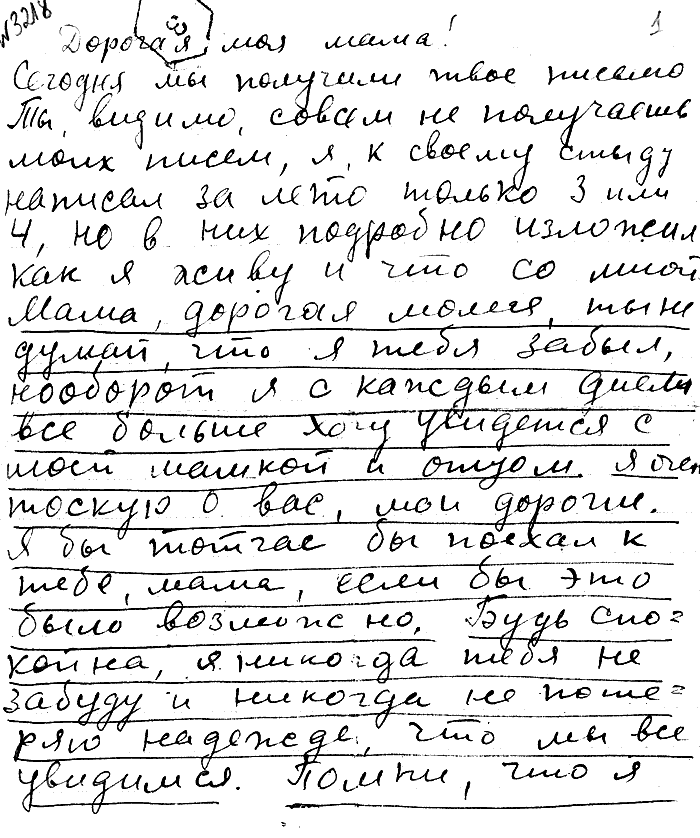 N3218
3
1
Дорогая моя мама!
Сегодня мы получили твое письмо
Ты, видимо, совсем не получаешь
моих писем, я, к своему стыду
написал за лето только 3 или
4, но в них подробно изложил
как я живу и что со мной
Мама, дорогая моя, ты не
думай, что я тебя забыл,
нооборот я с каждым днем
все больше хочу увидется с
моей мамкой и отцом. Я очен
тоскую о вас, мои дорогие.
Я бы тотчас бы поехал к
тебе, мама, если бы это
было возможно. Будь спо=
койна, я никогда тебя не
забуду и никогда не поте=
ряю надежде, что мы все
увидимся. Помни, что я